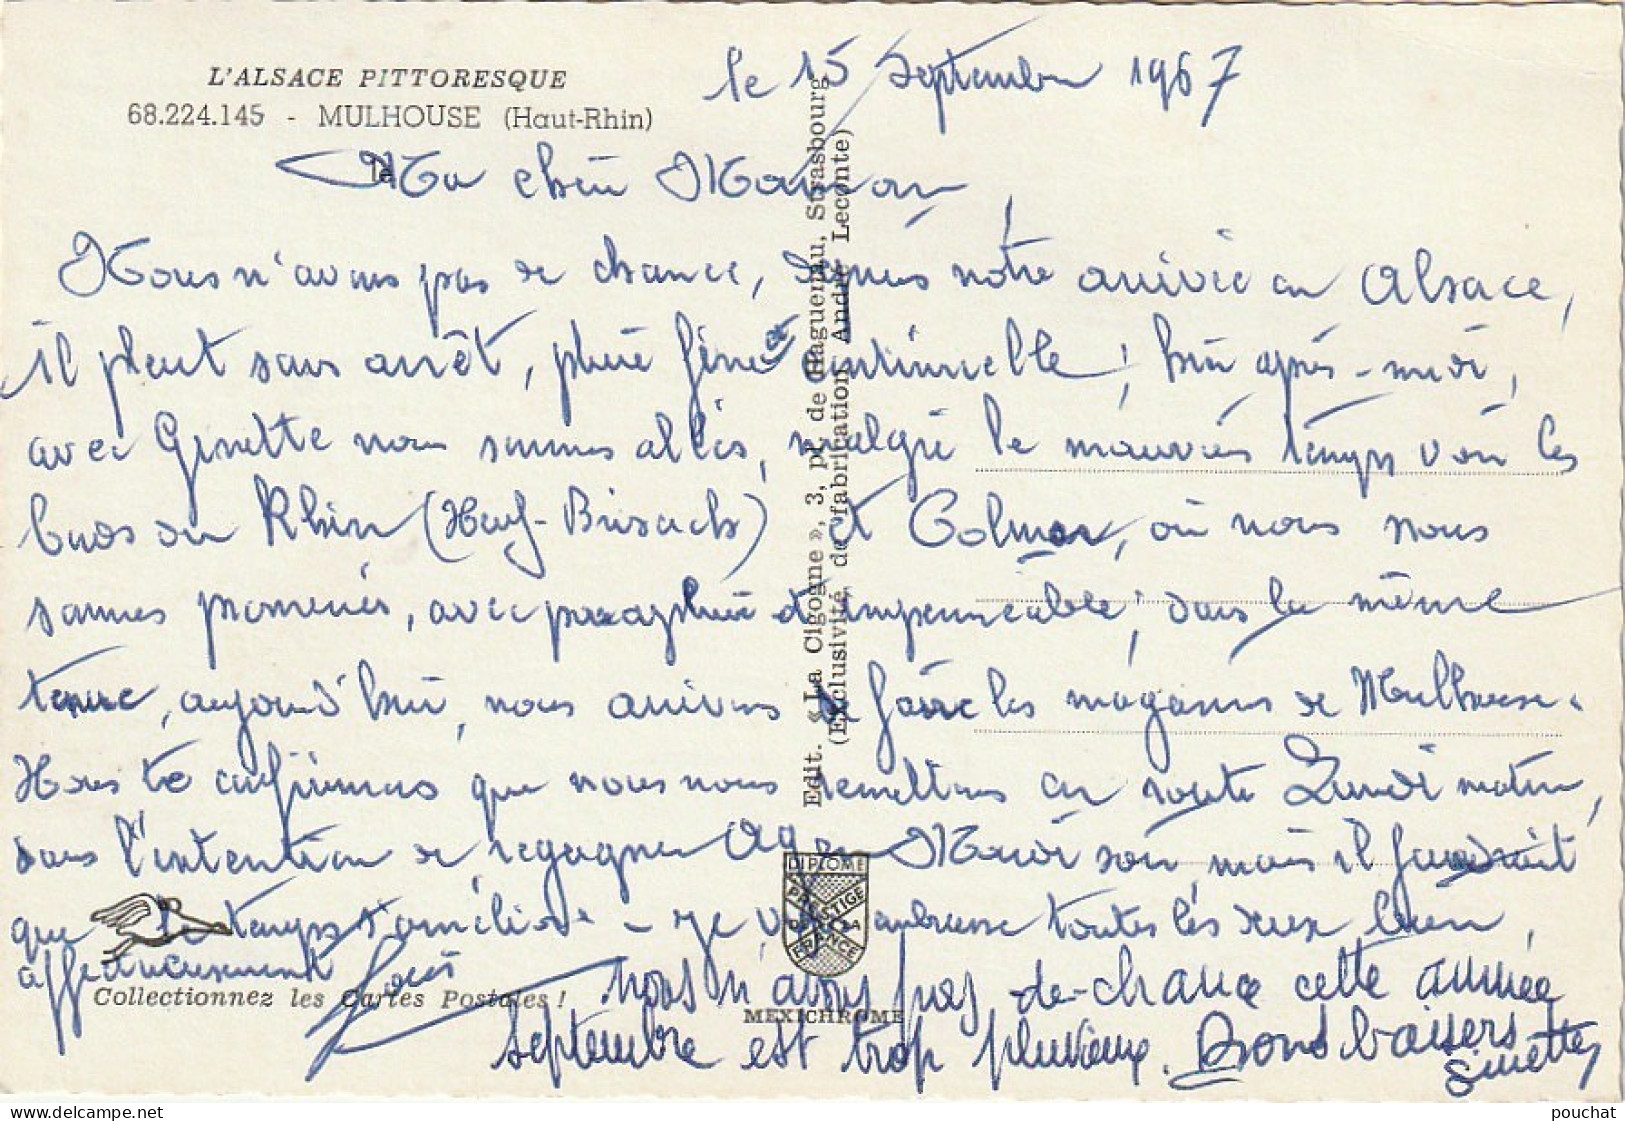 L'ALSACE PITTORESQUE
68.224.145 - MULHOUSE (Haut-Rhin)
le 15 Septembre 1967
Ma chère Maman,
Nous n'avons pas de chance, depuis notre arrivée en Alsace,
il pleut sans arrêt, pluie fine et continuelle ; hier après-midi,
avec Ginette nous sommes allés, malgré le mauvais temps voir les
bords du Rhin (Neuf-Brisach) et Colmar, où nous nous
sommes promenés, avec parapluie et imperméable ; dans la même
tenue, aujourd'hui, nous avons fait les magasins de Mulhouse.
Nous te confirmons que nous nous remettons en route Lundi matin,
dans l'intention de regagner Agen Mardi soir, mais il faudrait
que le temps s'améliore - Je vous embrasse toutes les deux bien
affectueusement
nous n'avons pas de chance cette année
septembre est trop pluvieux. Bons baisers
Ginette
Edit. « La Cigogne », 3, pl. de Haguenau, Strasbourg
(Exclusivité de fabrication André Leconte)
DIPLOME
PRESTIGE
DE LA
FRANCE
MEXICHROME
Collectionnez les Cartes Postales !
pouchat